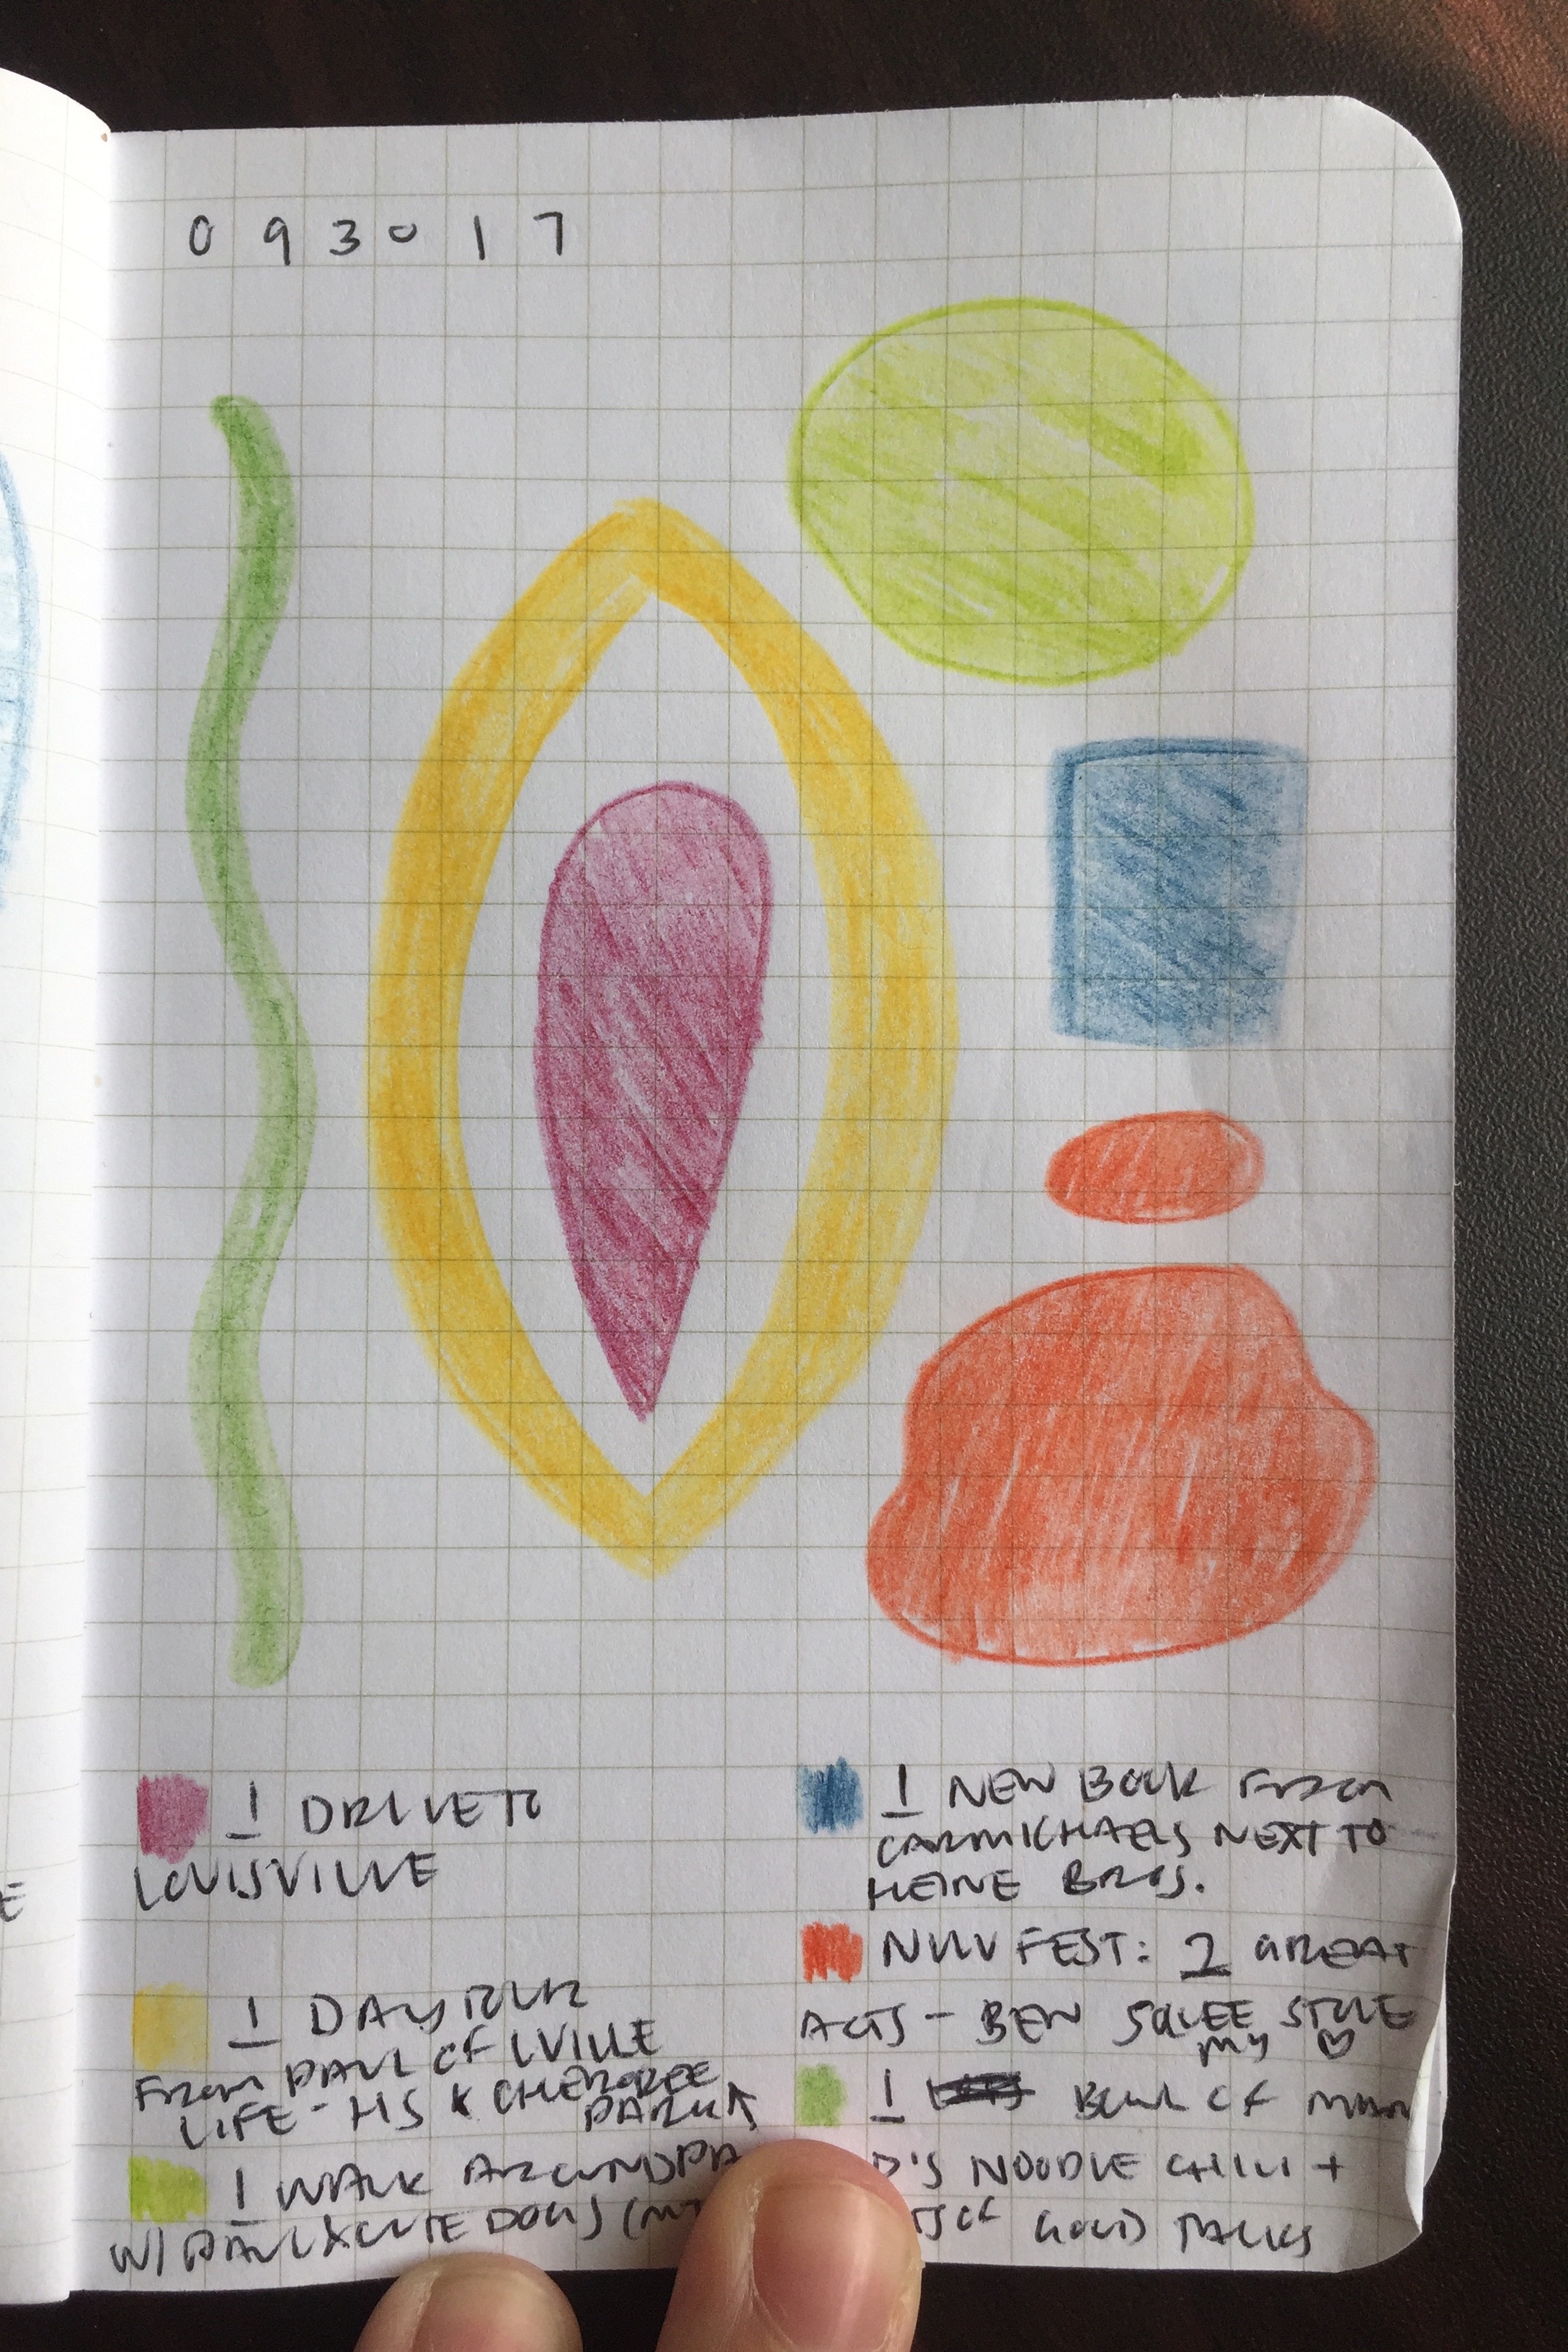 093017
1 DRIVE TO
LOUISVILLE
1 DAY TOUR
FROM PAUL OF LVILLE
LIFE - HS & CHEROKEE
PARK ↑
1 WALK AROUND PA
W/ PAUL & CUTE DOGS (
1 NEW BOOK FROM
CARMICHAELS NEXT TO
HEINE BROS.
NULU FEST: 2 GREAT
ACTS - BEN SOLEE STOLE
MY ♡
1 BOWL OF
D'S NOODLE CHILI +
OF GOOD TALKS
E